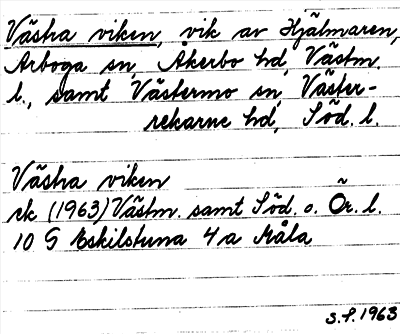 Västra viken, vik av Hjälmaren,
Arboga sn, Åkerbo hd, Västm.
l., samt Västermo sn, Väster-
rekarne hd, Söd. l.
Västra viken
ek (1963) Västm. samt Söd. o. Ör. l.
10 G Eskilstuna 4a Måla
S.P. 1963